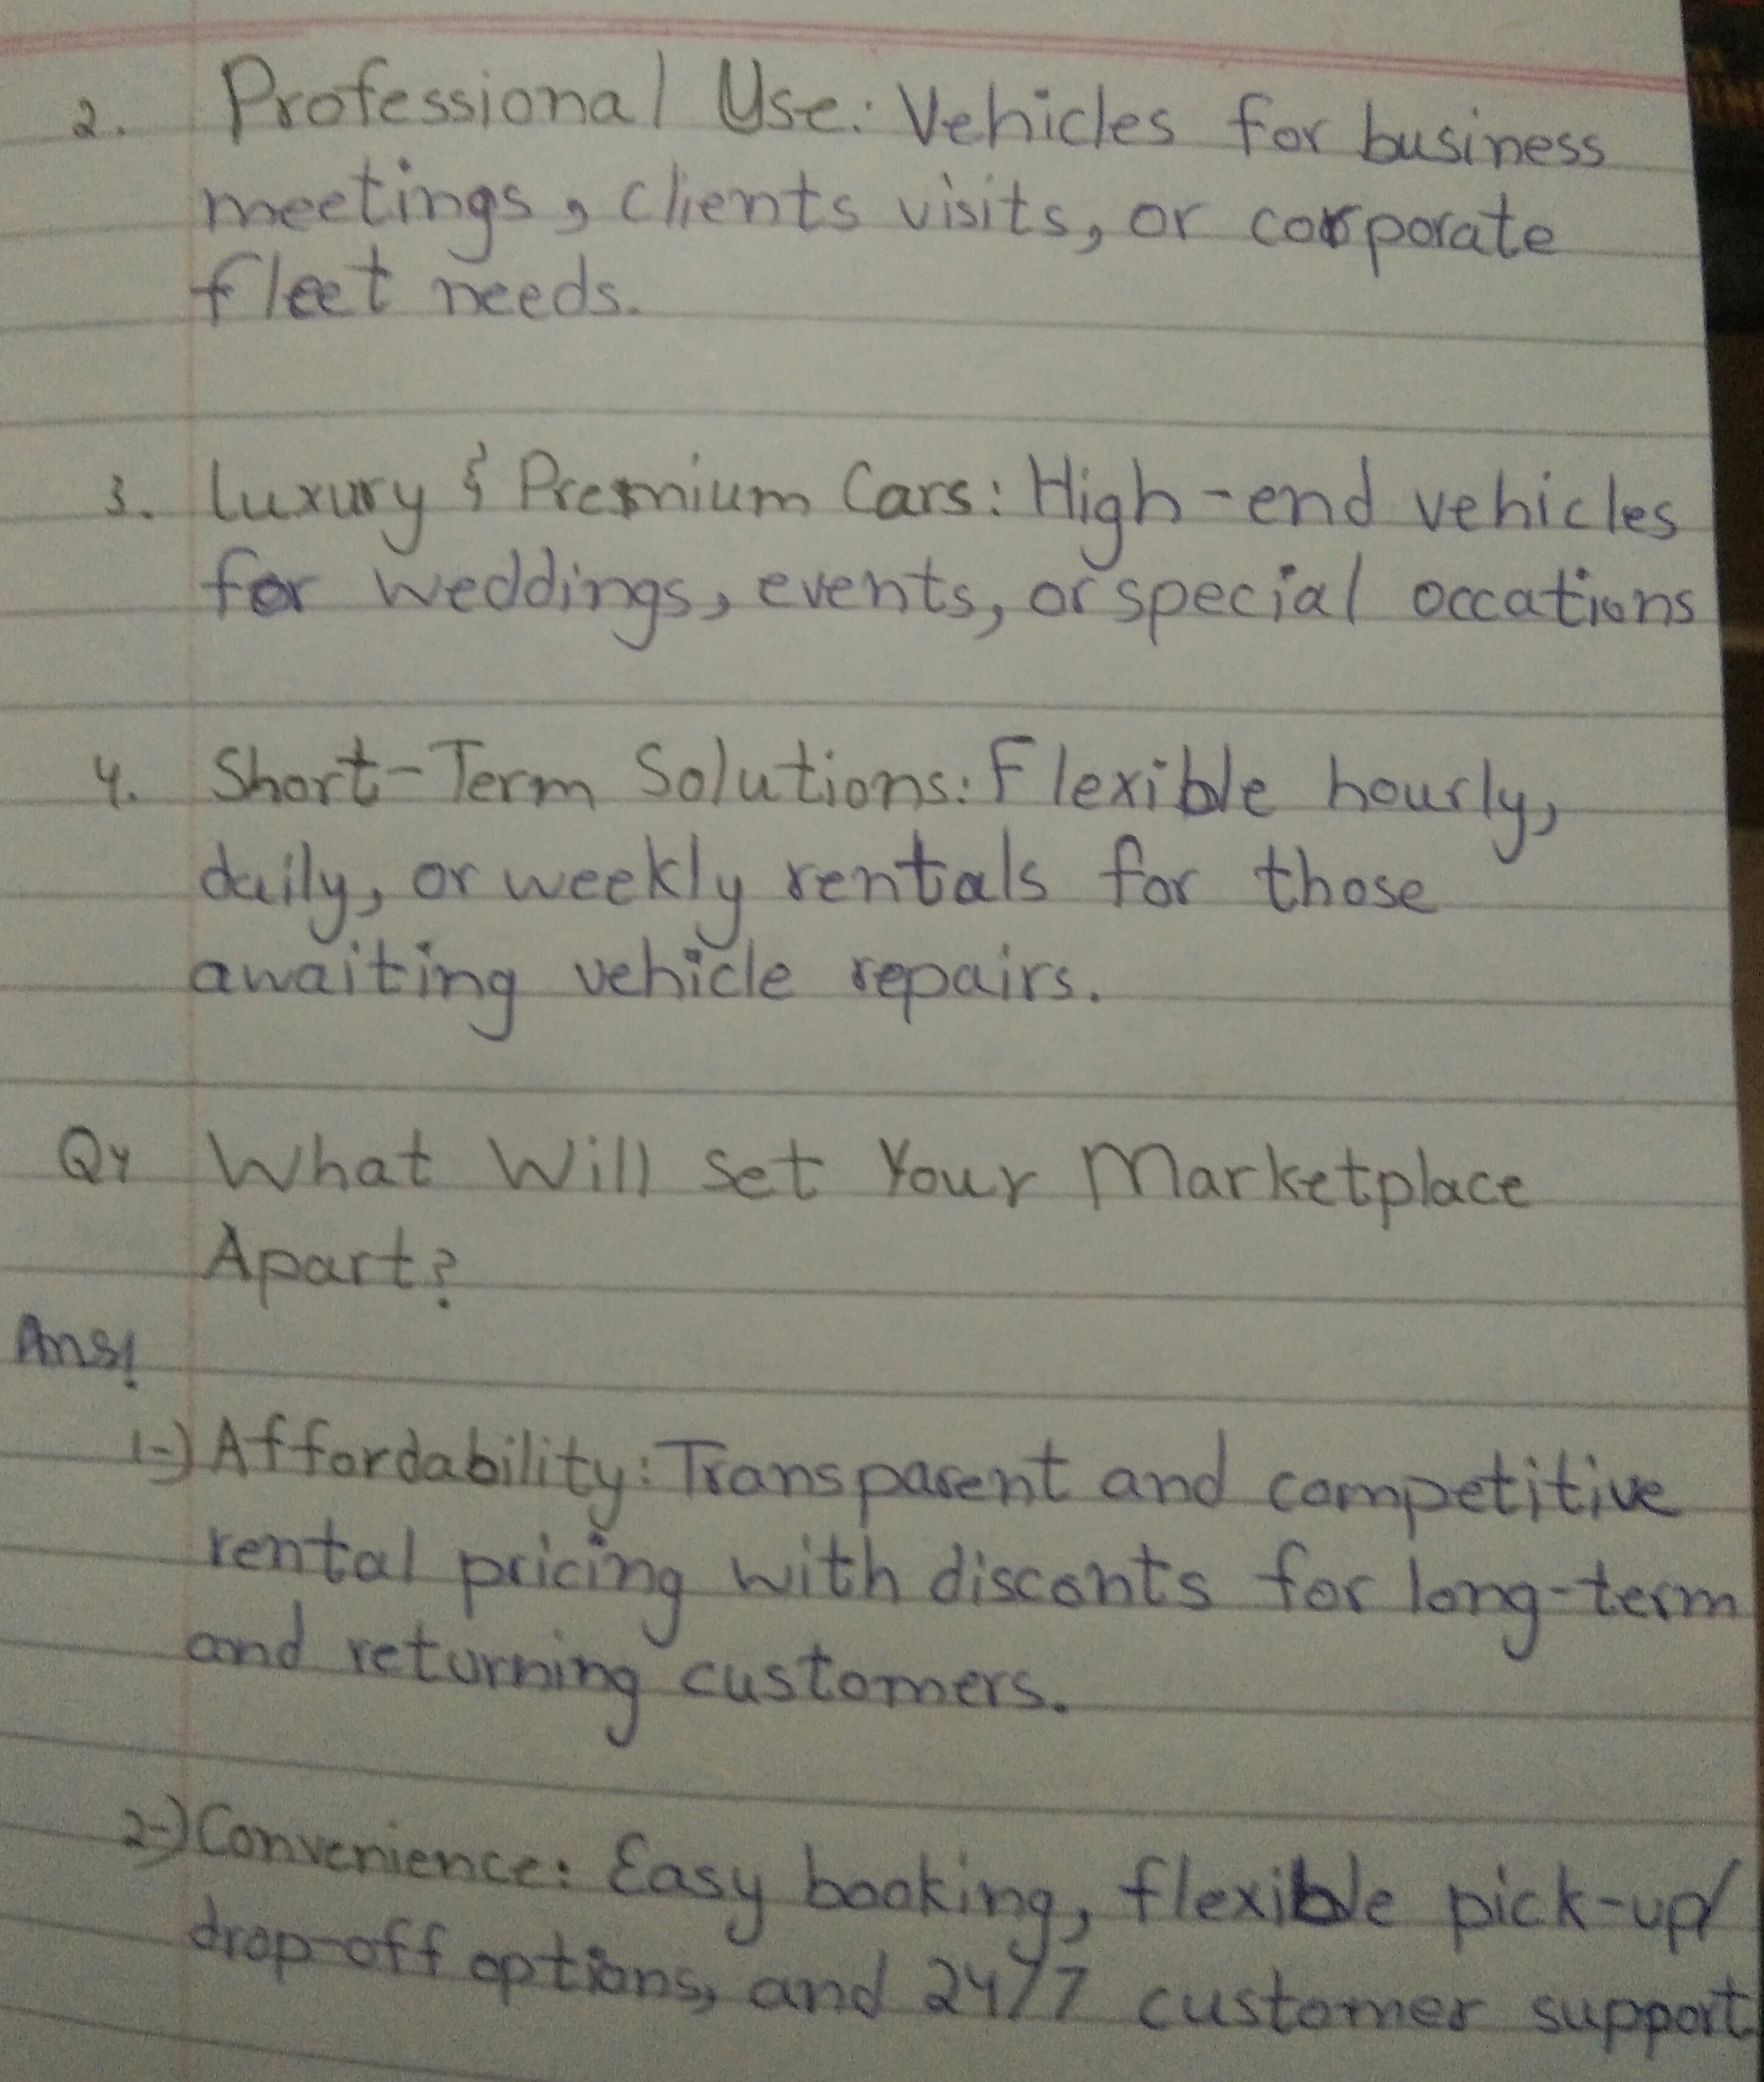 2. Professional Use: Vehicles for business
meetings, clients visits, or corporate
fleet needs.
3. Luxury & Premium Cars: High-end vehicles
for weddings, events, or special occations
4. Short-Term Solutions: Flexible hourly,
daily, or weekly rentals for those
awaiting vehicle repairs.
Q4 What Will Set Your Marketplace
Apart?
Ans!
1-) Affordability: Transparent and competitive
rental pricing with disconts for long-term
and returning customers.
2-) Convenience: Easy booking, flexible pick-up/
drop-off options, and 24/7 customer support.